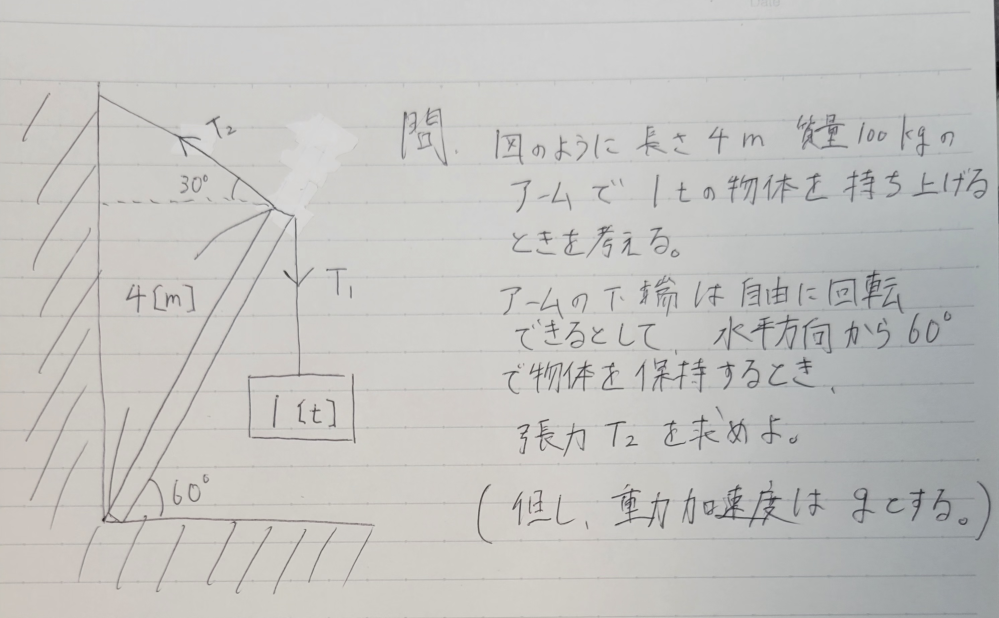 T₂
30°
T₁
4[m]
1[t]
60°
問. 図のように長さ4m 質量100kgの
アームで 1tの物体を持ち上げる
ときを考える。
アームの下端は自由に回転
できるとして、水平方向から60°
で物体を保持するとき、
張力T₂を求めよ。
(但し、重力加速度はgとする。)